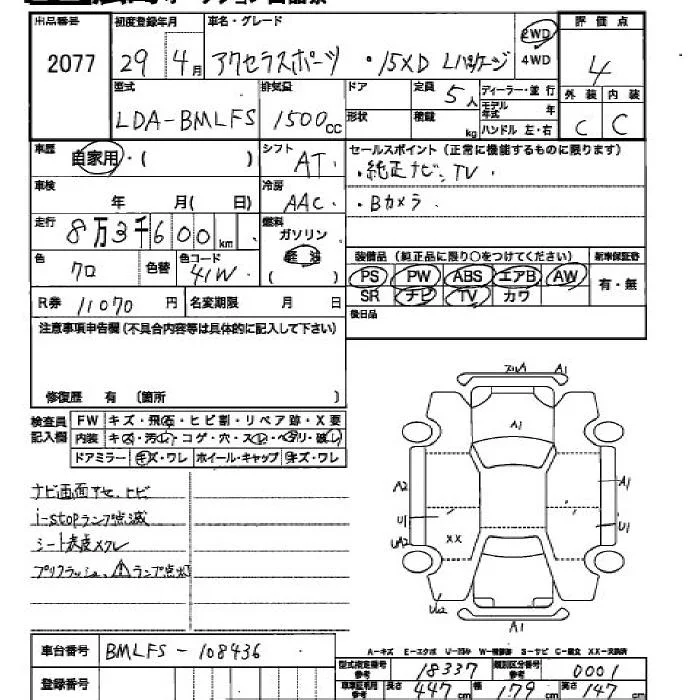 出品番号 初度登録年月 車名・グレード 2WD 評価点
2077 29年 4月 アクセラスポーツ ・15XD Lパッケージ 4WD 4
型式 排気量 ドア 定員 5人 ディーラー・並行 外装 内装
LDA-BMLFS 1500cc 形状 積載 kg モデル年式 年 C C
ハンドル 左・右
車歴 自家用・( ) シフト AT セールスポイント（正常に機能するものに限ります）
・純正ナビ、TV.
車検 年 月( 日) 冷房 AAC ・Bカメラ
走行 8万3千600km 燃料 ガソリン 軽油 ( )
装備品（純正品に限り○をつけてください） 新車保証書
色 クロ 色替 色コード 41W PS PW ABS エアB AW 有・無
SR ナビ TV カワ
R券 11070円 名変期限 月 日 後日品
注意事項申告欄（不具合内容等は具体的に記入して下さい）
修復歴 有 〔箇所 〕
検査員記入欄 FW キズ・飛石・ヒビ割・リペア跡・X要
内装 キズ・汚レ・コゲ・穴・スレ・ヘタリ・破レ
ドアミラー キズ・ワレ ホイール・キャップ キズ・ワレ
A1
A1
A2 A1
U1 U1
XX
UA2
A1
i-stopランプ点滅
A-キズ E-エクボ U-凹み W-補修跡 S-サビ C-腐食 XX-交換済
車台番号 BMLFS-108436
型式指定番号参考 18337 類別区分番号参考 0001
登録番号 車車証明用参考 長さ 447cm 幅 179cm 高さ 147cm